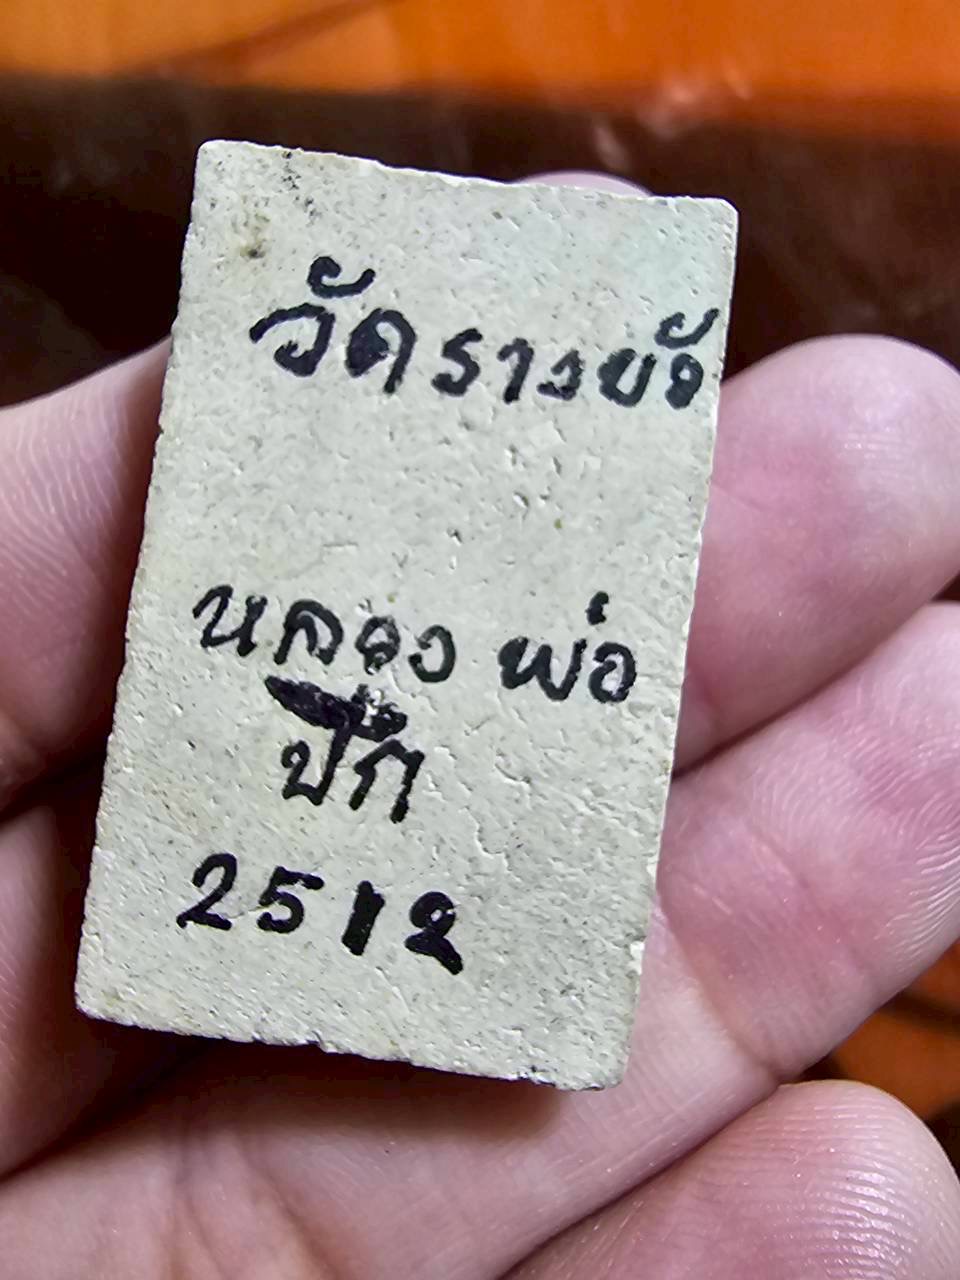 วัดรางบัว
หลวงพ่อ
ปึก
2512